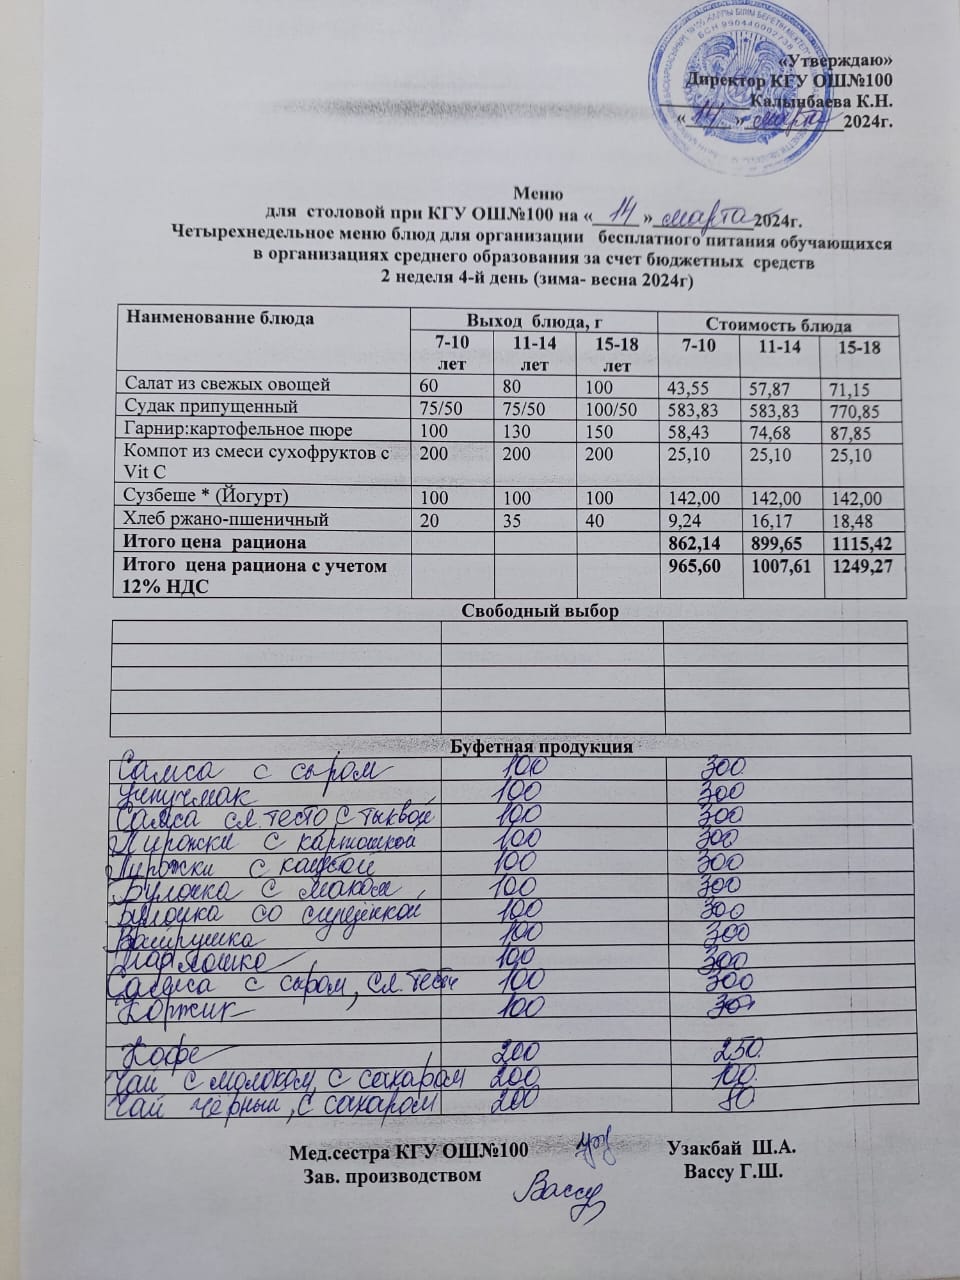 БСН 990440002738
«Утверждаю»
Директор КГУ ОШ№100
Калынбаева К.Н.
« 14 » марта 2024г.
Меню
для столовой при КГУ ОШ№100 на « 14 » марта 2024г.
Четырехнедельное меню блюд для организации бесплатного питания обучающихся
в организациях среднего образования за счет бюджетных средств
2 неделя 4-й день (зима- весна 2024г)
Наименование блюда Выход блюда, г Стоимость блюда
7-10 лет 11-14 лет 15-18 лет 7-10 11-14 15-18
Салат из свежых овощей 60 80 100 43,55 57,87 71,15
Судак припущенный 75/50 75/50 100/50 583,83 583,83 770,85
Гарнир:картофельное пюре 100 130 150 58,43 74,68 87,85
Компот из смеси сухофруктов с 200 200 200 25,10 25,10 25,10
Vit C
Сузбеше * (Йогурт) 100 100 100 142,00 142,00 142,00
Хлеб ржано-пшеничный 20 35 40 9,24 16,17 18,48
Итого цена рациона 862,14 899,65 1115,42
Итого цена рациона с учетом 965,60 1007,61 1249,27
12% НДС
Свободный выбор
Буфетная продукция
Самса с сыром 100 300
Учпучмак 100 300
Самса сл. тесто с тыквой 100 300
Пирожки с картошкой 100 300
Пирожки с капустой 100 300
Булочка с маком 100 300
Булочка со сгущенкой 100 300
Ватрушка 100 300
100 300
Самса с сыром, сл. тесто 100 300
Коржик 100 300
Кофе 200 250
Чай с молоком, с сахаром 200 100
Чай чёрный, с сахаром 200 80
Мед.сестра КГУ ОШ№100 Узакбай Ш.А.
Зав. производством Вассу Г.Ш.
Вассу